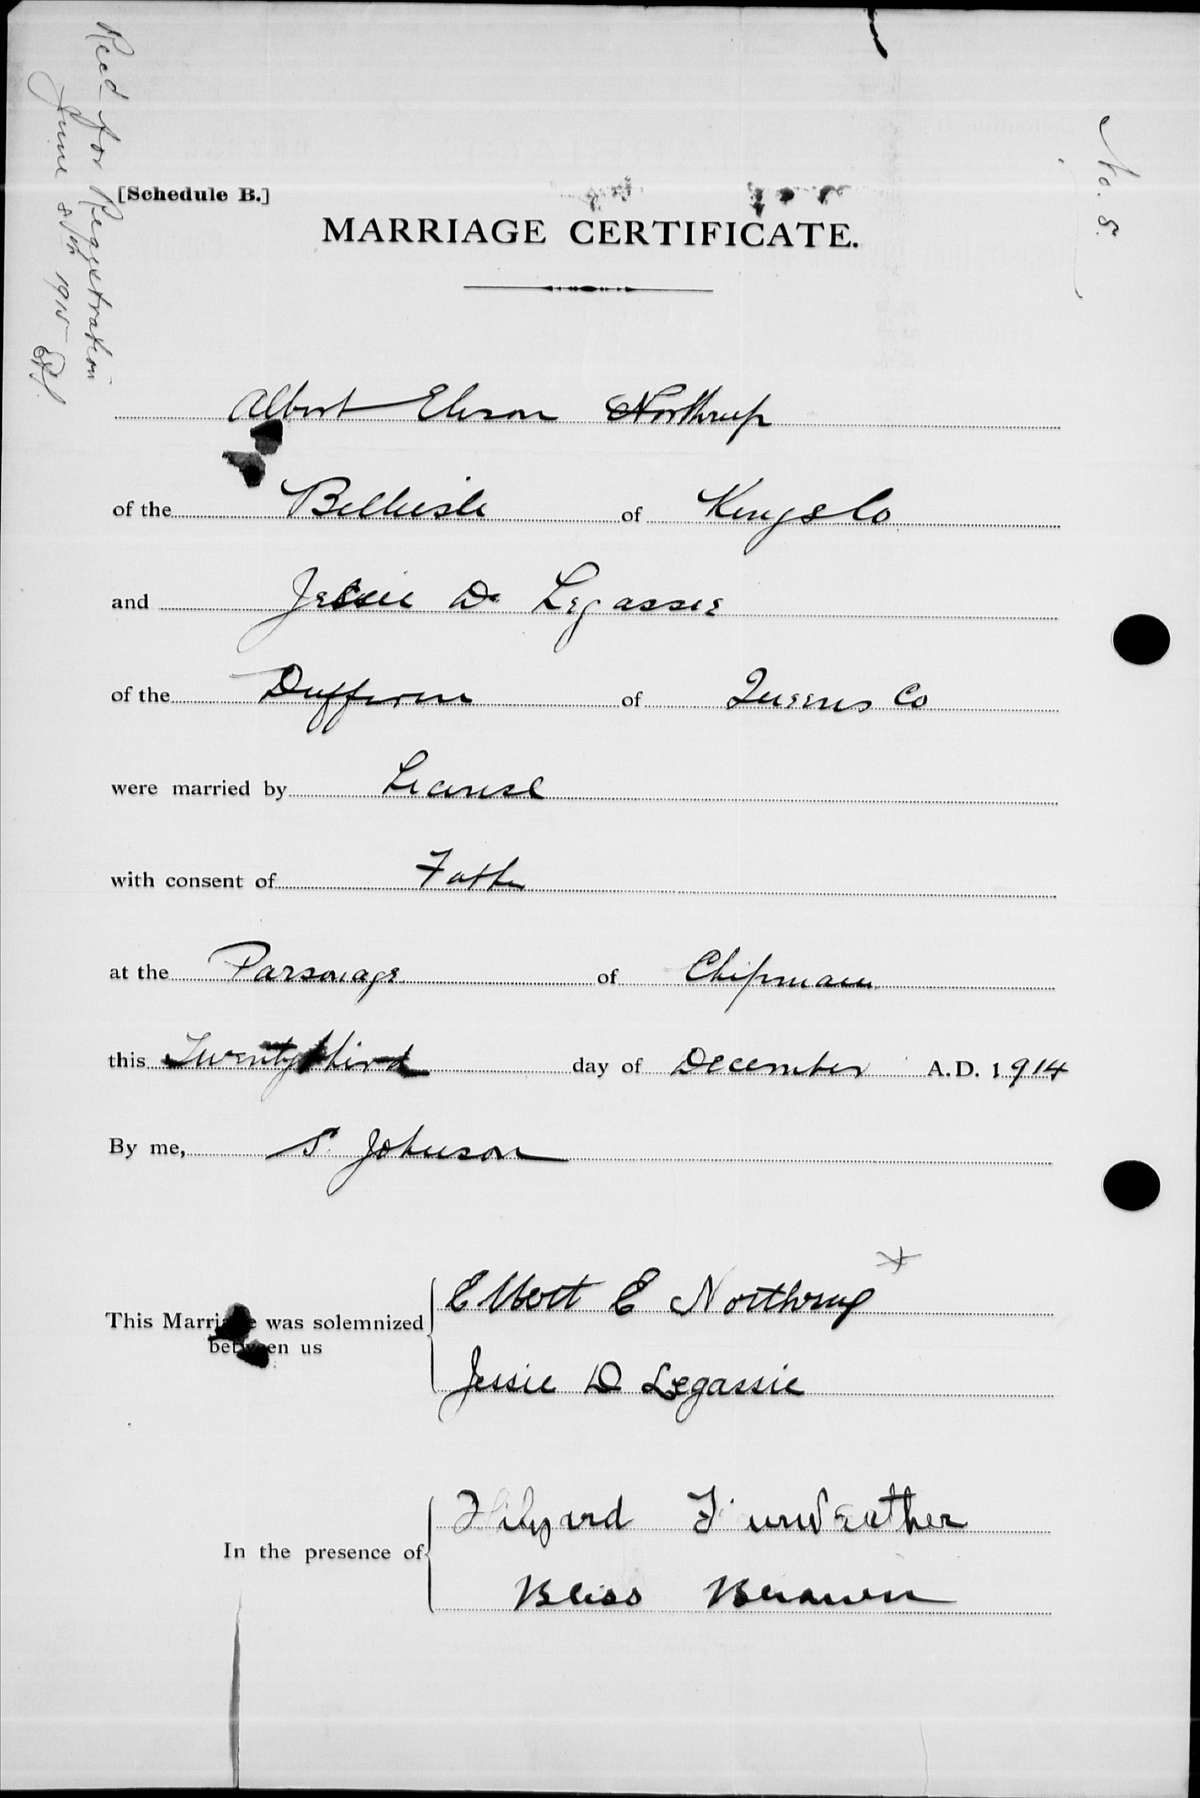 Recd for Registration
June 8th 1915
No. 8.
[Schedule B.]
MARRIAGE CERTIFICATE.
Albert Elison Northrup
of the Belleisle of Kings Co
and Jessie D. Legassie
of the Dufferin of Queens Co
were married by License
with consent of Father
at the Parsonage of Chipman
this Twenty third day of December A.D. 1914
By me, S. Johnson
Elbert E Northrup
This Marriage was solemnized
between us
Jessie D Legassie
Fairweather
In the presence of
Bliss Brown